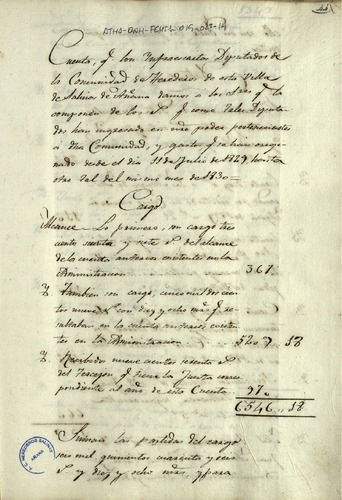 ATHA-DAH-FCHSA-015-023-14
Cuenta, q.e los Infraescritos Diputados de
la Comunidad de Herederos de esta Villa
de Salinas de Añana damos a los Sres q.e la
componen de los r.s q.e como tales Diputa
dos han ingresado en nro poder pertenecientes
a dha Comunidad, y gastos q.e se han origi
nado desde el dia 11 de Julio de 1829 hasta
otro tal del mismo mes de 1830=
Cargo
Alcance - Lo primero, son cargo tres
cientos sesenta y siete r.s del alcance
de la cuenta anterior existente en la
Administracion 367.
Y. Tambien son cargo, cinco mil dos cien
tos nueve r.s con diez y ocho mrs q.e re
sultaban en la cuenta anterior existen
tes en la Administracion 5209 18
Y. Recibido nueve cientos setenta r.s
del q.e tiene la Junta corres
pondiente al año de esta Cuenta 97..
6546.. 18
Suman las partidas del cargo
seis mil, quinientos cuarenta y seis
r.s y diez y ocho mrs. y para